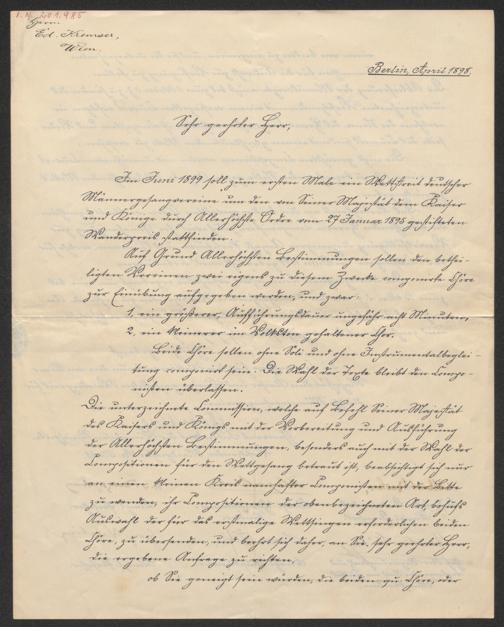 I. N. 201.985
Herrn
Ed. Kremser,
Wien.
Berlin, April 1898.
Sehr geehrter Herr,
Im Juni 1899 soll zum ersten Male ein Wettstreit deutscher
Männergesangvereine um den von Seiner Majestät dem Kaiser
und Könige durch Allerhöchste Ordre vom 27 Januar 1895 gestifteten
Wanderpreis stattfinden.
Auf Grund Allerhöchsten Bestimmungen sollen den bethei-
ligten Vereinen zwei eigens zu diesem Zwecke componirte Chöre
zur Einübung aufgegeben werden, und zwar:
1, ein größerer, Aufführungsdauer ungefähr acht Minuten,
2, ein kleinerer im Volkston gehaltener Chor.
Beide Chöre sollen ohne Soli und ohne Instrumentalbeglei-
tung componirt sein. Die Wahl der Texte bleibt den Compo-
nisten überlassen.
Die unterzeichnete Commission, welche auf Befehl Seiner Majestät
des Kaisers und Königs mit der Vorbereitung und Ausführung
der Allerhöchsten Bestimmungen, besonders auch mit der Wahl der
Compositionen für den Wettgesang betraut ist, beabsichtigt sich nur
an einen kleinen Kreis namhafter Componisten mit der Bitte
zu wenden, ihr Compositionen der obenbezeichneten Art, behufs
Auswahl der für das erstmalige Wettsingen erforderlichen beiden
Chöre, zu übersenden, und beehrt sich daher, an Sie, sehr geehrter Herr,
die ergebene Anfrage zu richten,
ob Sie geneigt sein würden, die beiden Chöre, oder